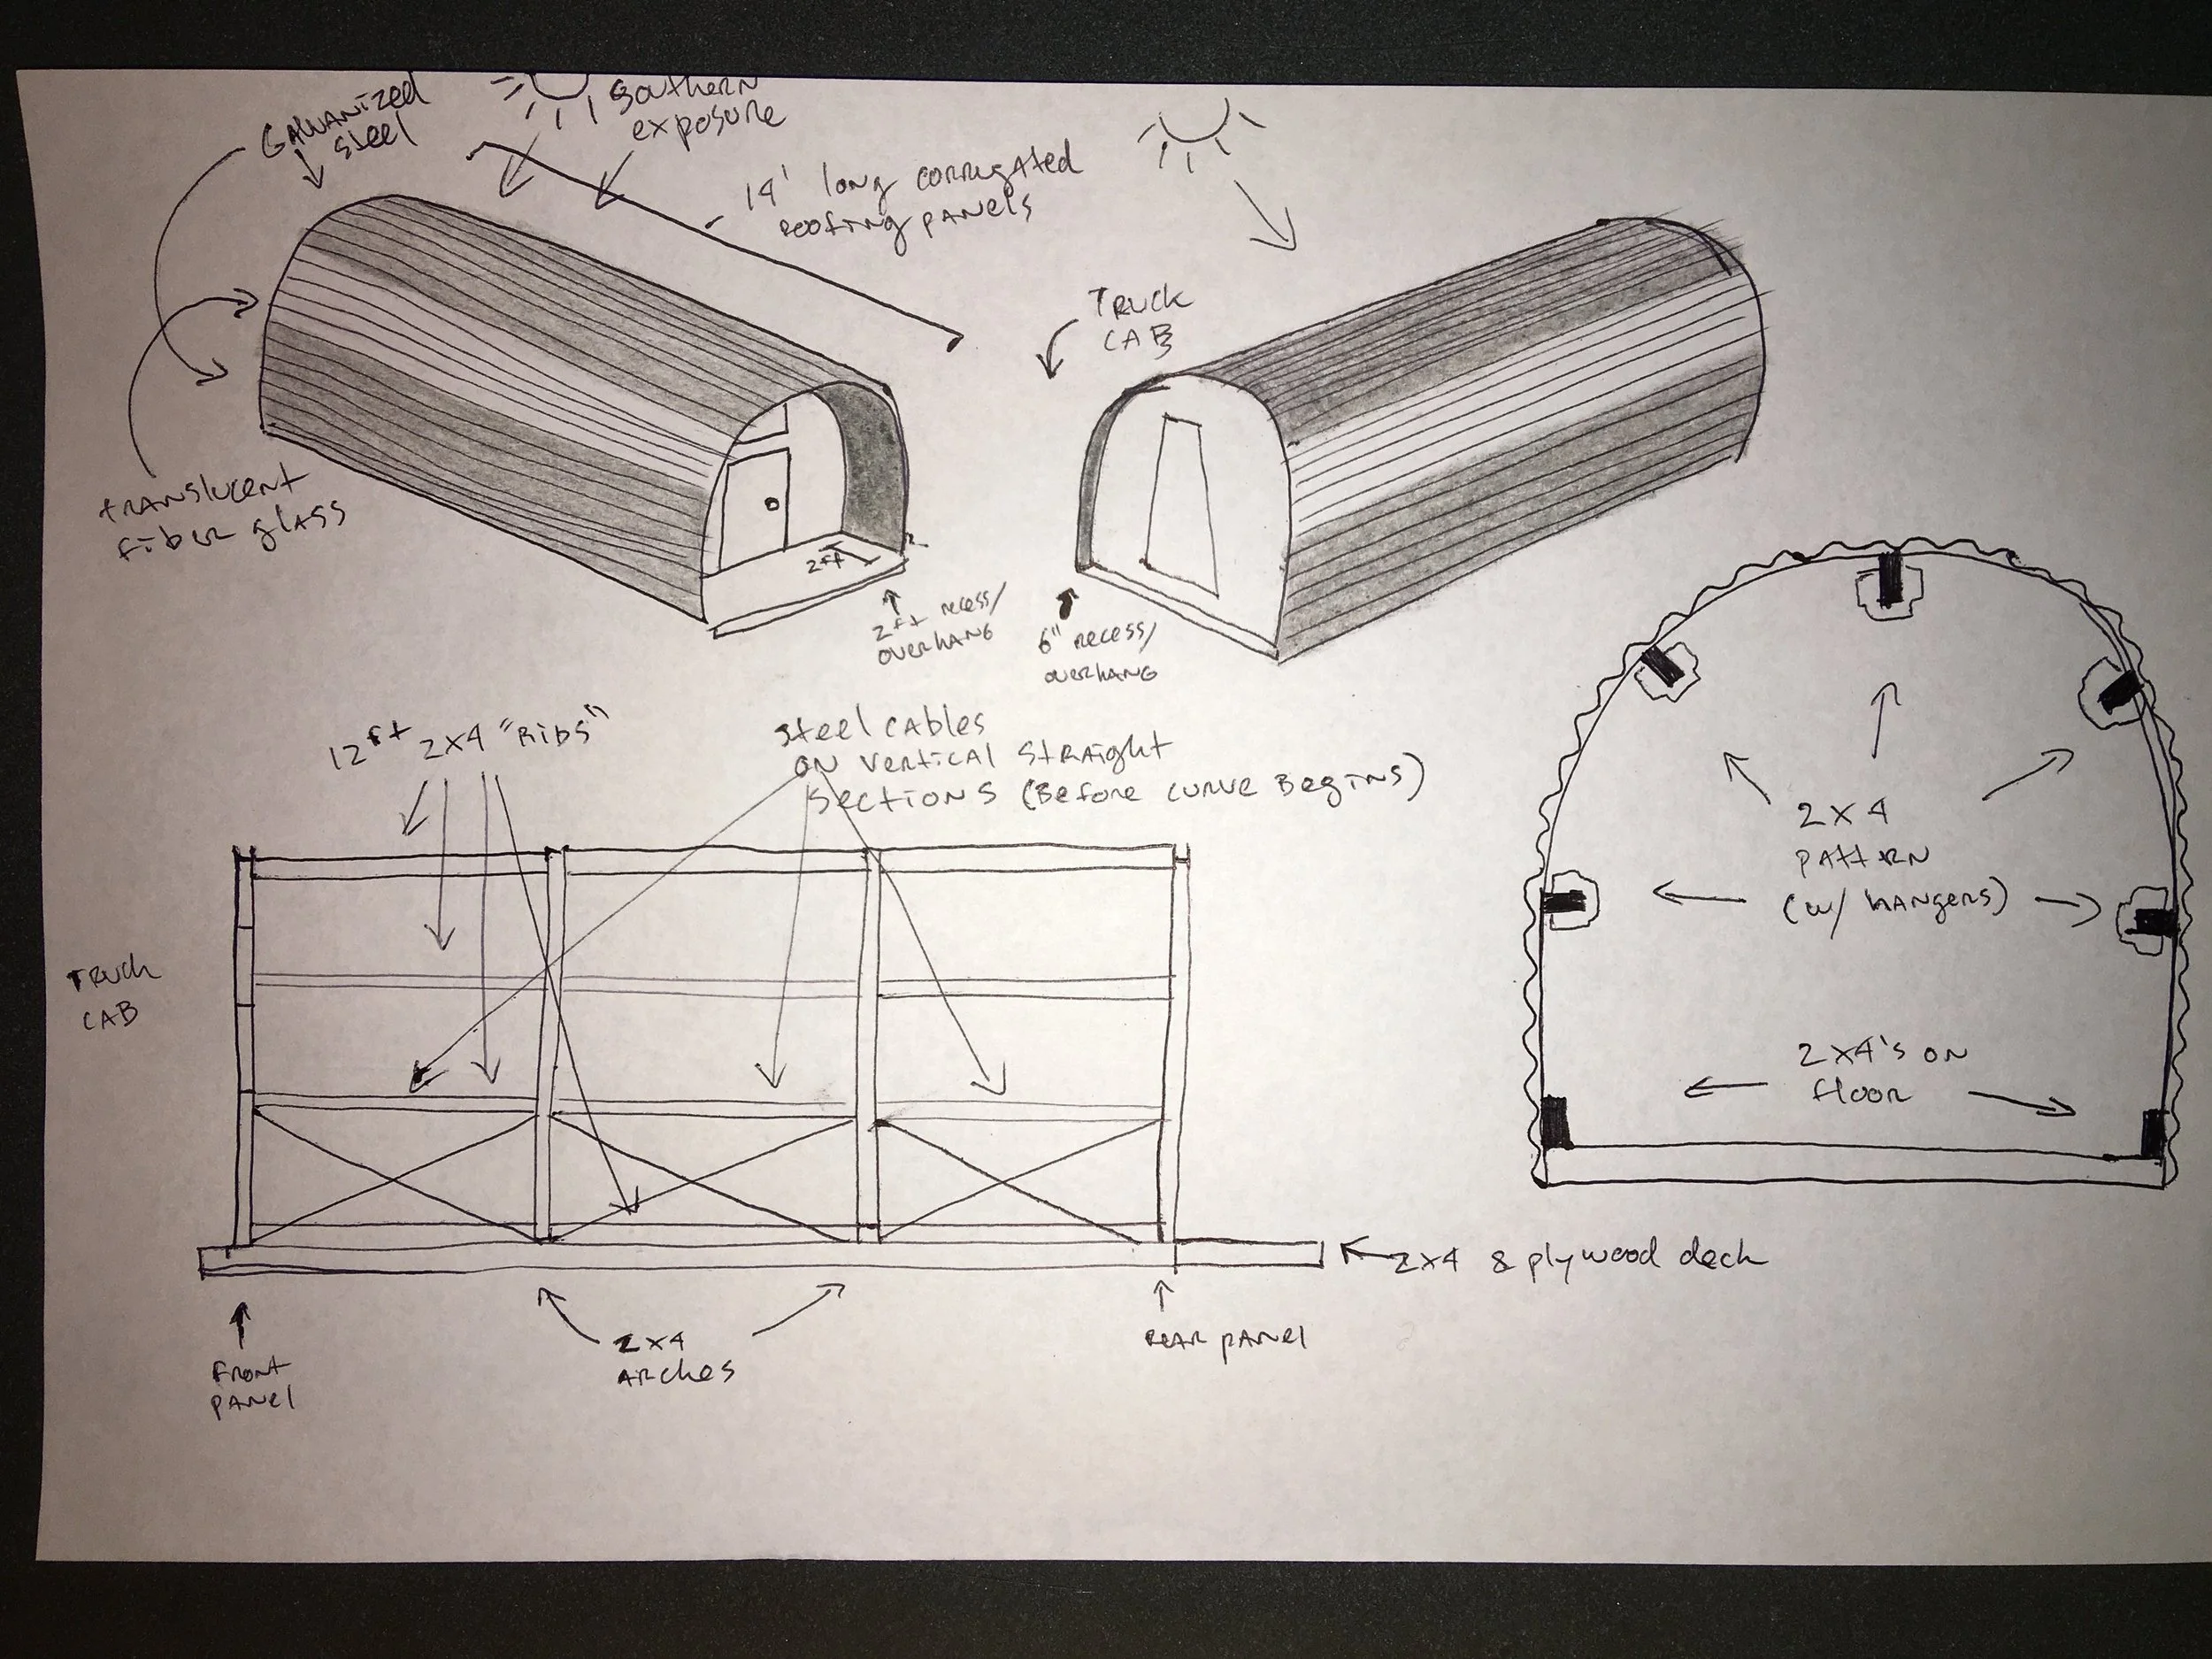 Galvanized
steel
Southern
exposure
14' long corrugated
roofing panels
Truck
CAB
translucent
fiber glass
2ft
2ft recess/
overhang
6" recess/
overhang
12ft 2x4 "Ribs"
Steel cables
on vertical straight
sections (Before curve Begins)
2x4
pattern
(w/ hangers)
Truck
CAB
2x4's on
floor
2x4 & plywood deck
2x4
Arches
Rear panel
Front
panel